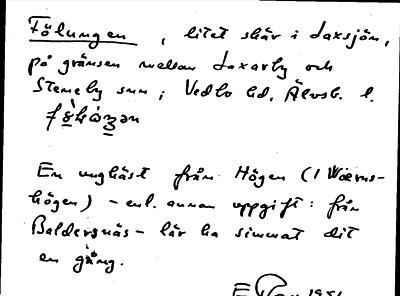 Fölungen, litet skär i Laxsjön,
på gränsen mellan Laxarby och
Steneby snr; Vedbo hd, Älvsb. l.
En unghäst från Högen (1 Wærns-
högen) – enl. annan uppgift: från
Baldersnäs – lär ha simmat dit
en gång.